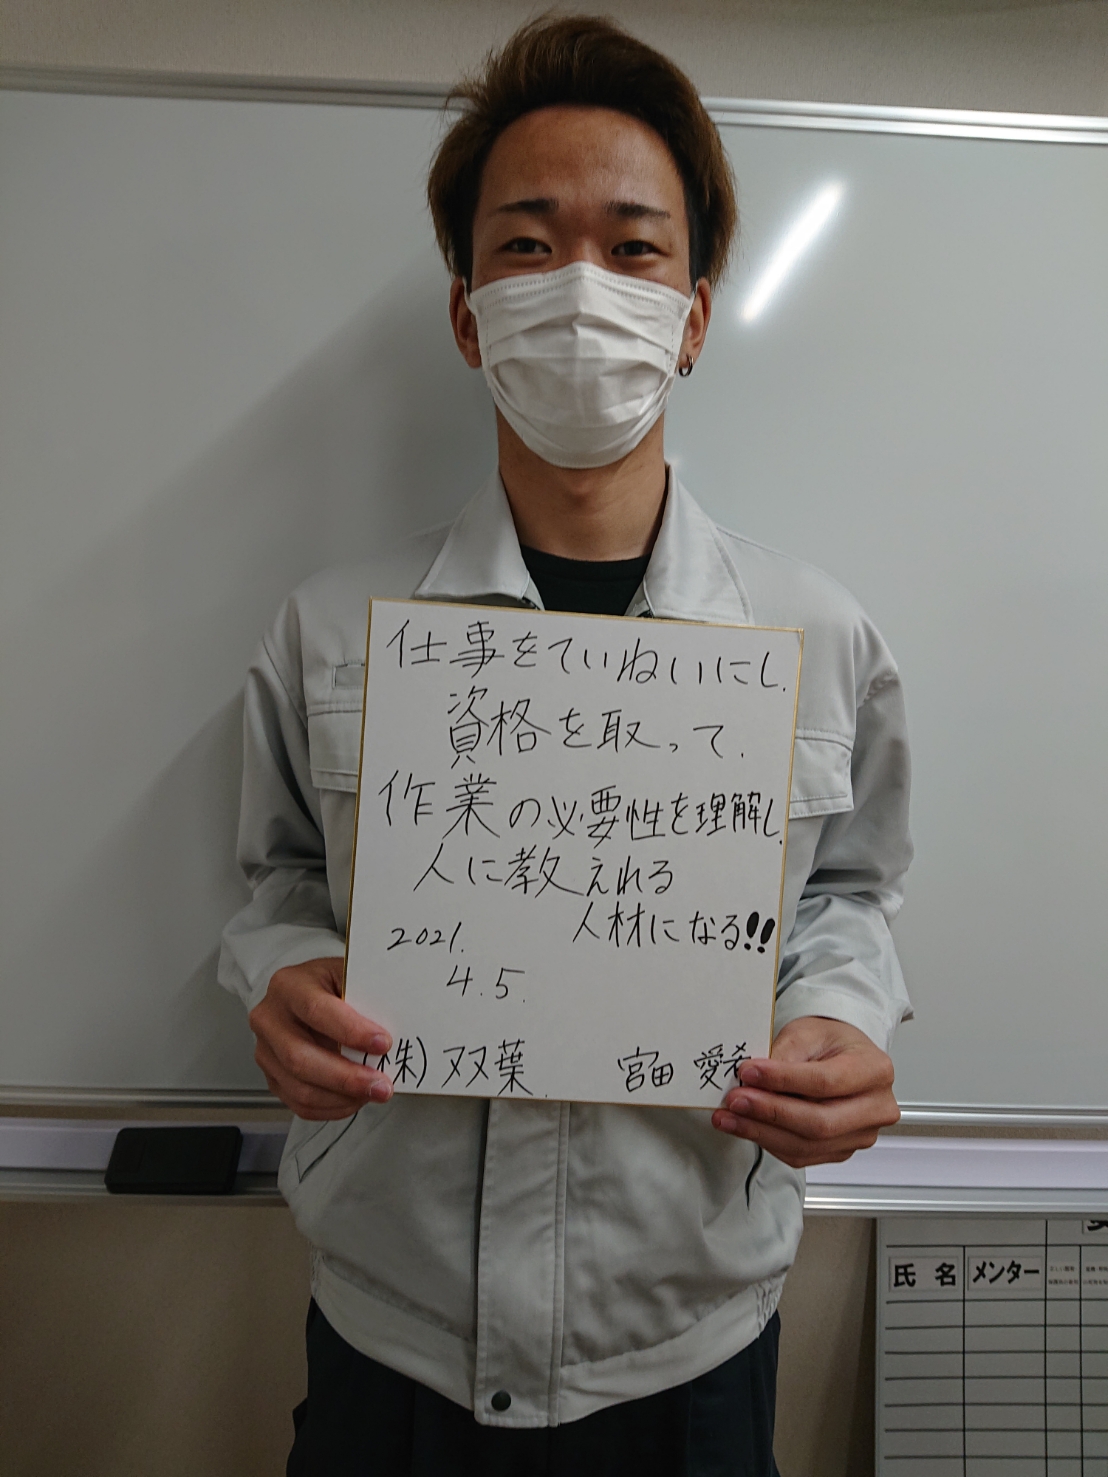 仕事をていねいにし、
資格を取って、
作業の必要性を理解し、
人に教えれる
人材になる!!
2021.
4.5.
(株)双葉.
宮田 愛希
氏 名
メンター